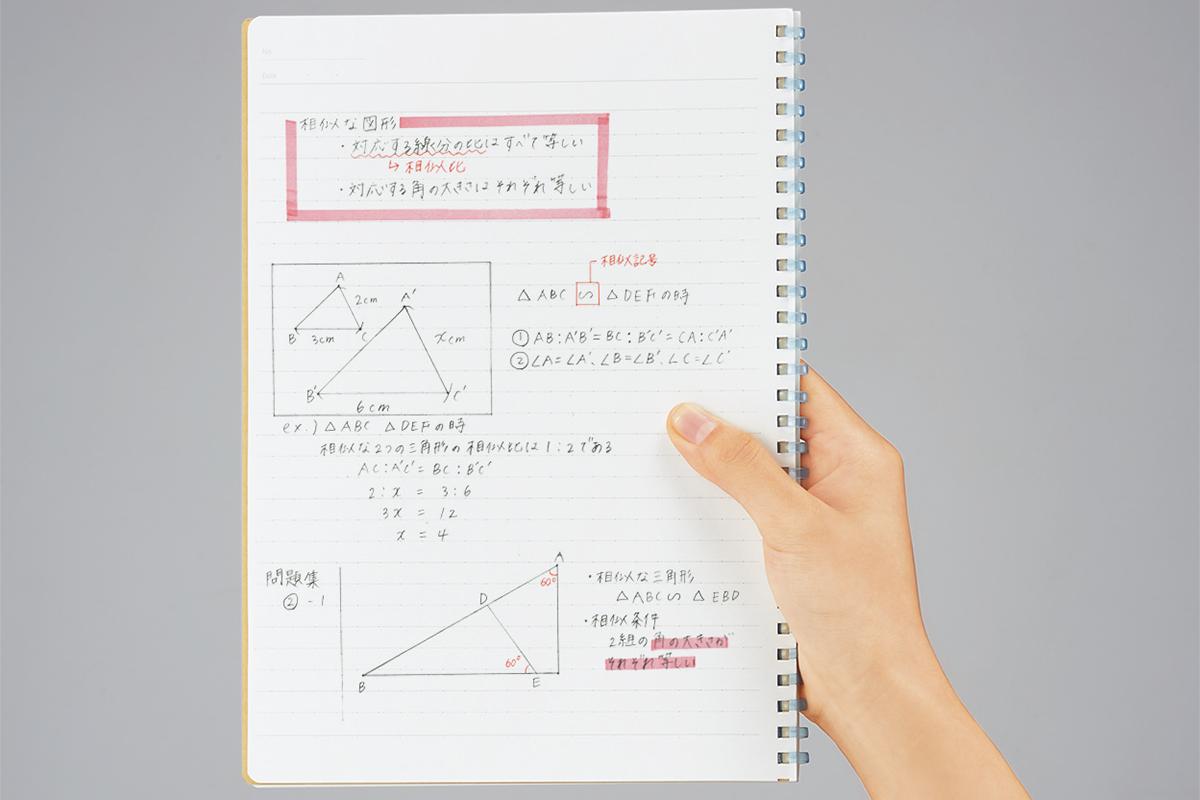 No.
Date
相似な図形
・対応する線分の比はすべて等しい
↳ 相似比
・対応する角の大きさはそれぞれ等しい
相似記号
△ABC ∽ △DEFの時
① AB:A'B'=BC:B'C'=CA:C'A'
② ∠A=∠A'、∠B=∠B'、∠C=∠C'
A
2cm
B
3cm
C
A'
xcm
B'
6cm
C'
ex.) △ABC △DEFの時
相似な2つの三角形の相似比は1:2である
AC:A'C'=BC:B'C'
2:x = 3:6
3x = 12
x = 4
問題集
②-1
A
60°
D
60°
B
E
・相似な三角形
△ABC∽ △EBD
・相似条件
2組の角の大きさが
それぞれ等しい